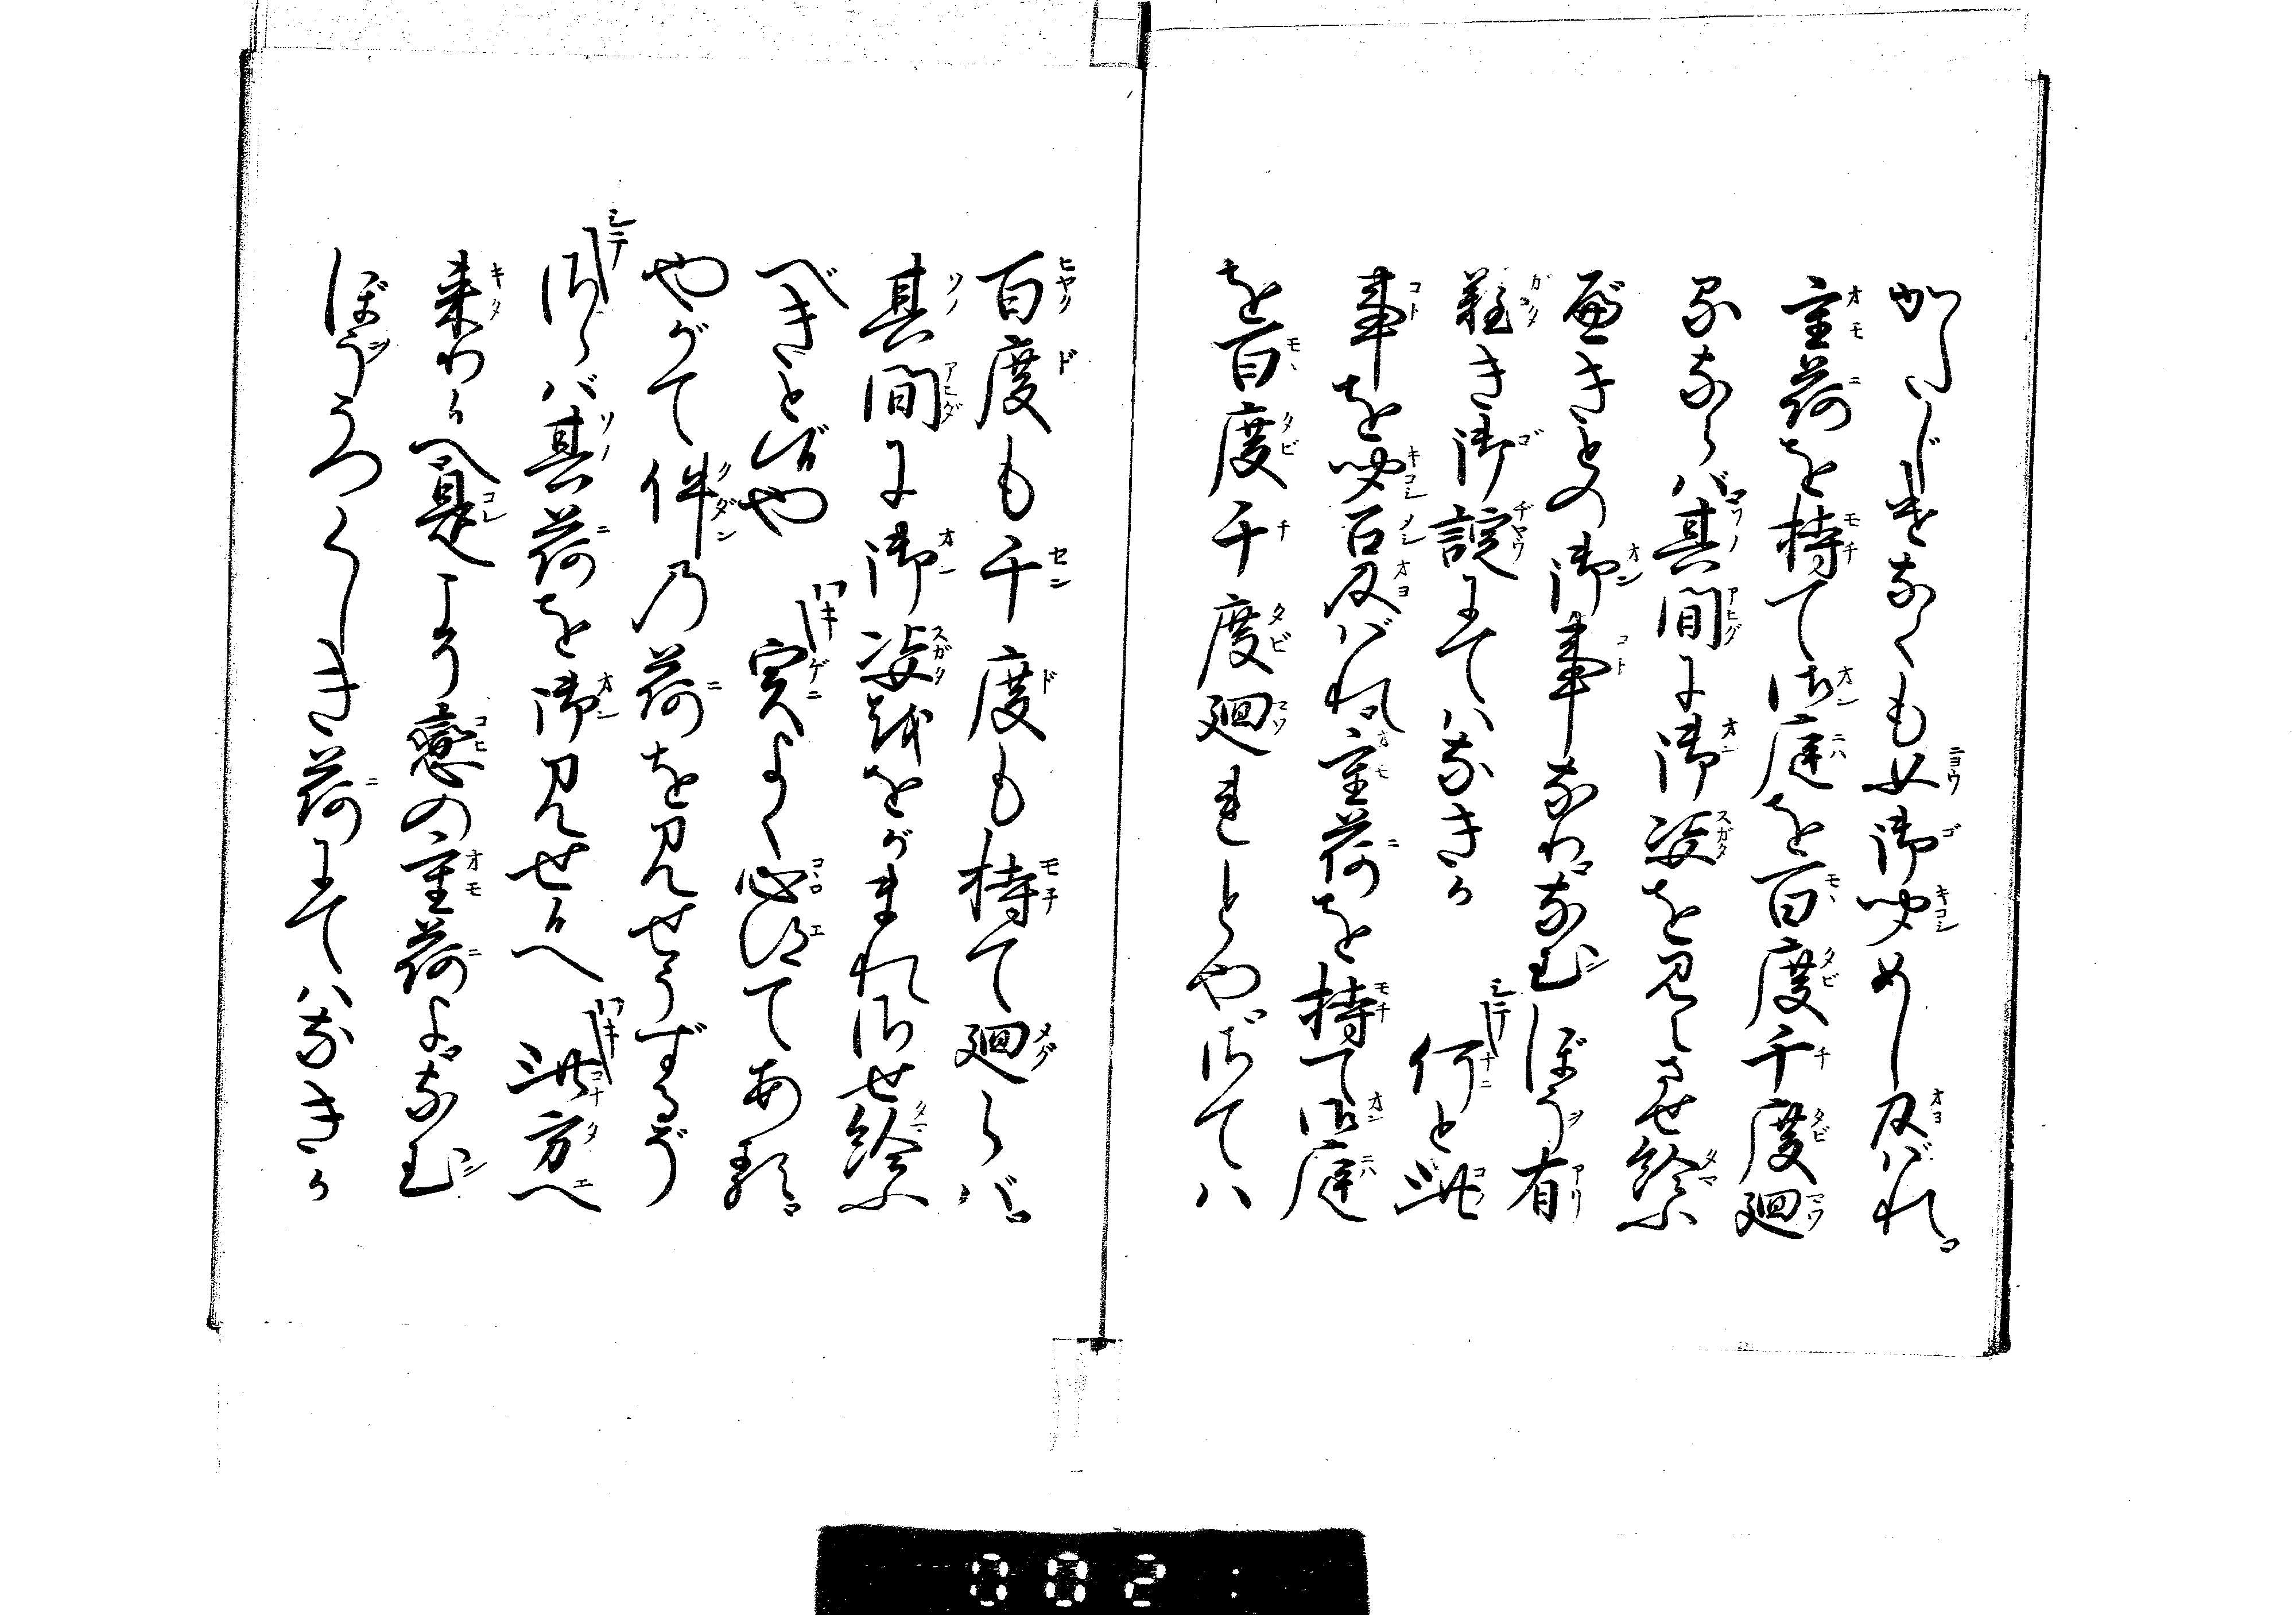 かたじけなくも女御聞めし及ばれ
重荷を持て御庭を百度千度廻
るならば其間に御姿を見えさせ給ふ
べきとの御事なりなむぼう有
難き御諚にてはなきか 何と此
事を聞召及ばれ重荷を持て御庭
を百度千度廻れとや偖ては
百度も千度も持て廻らば
其間に御姿をおがまれさせ給ふ
べきと候や 実よく心得てある
やがて件の荷を見せうずるぞ
さらば其荷を御見せ候へ 此方へ
来り候へ是こそ恋の重荷よなむ
ぼううつくしき荷にてはなきか
002